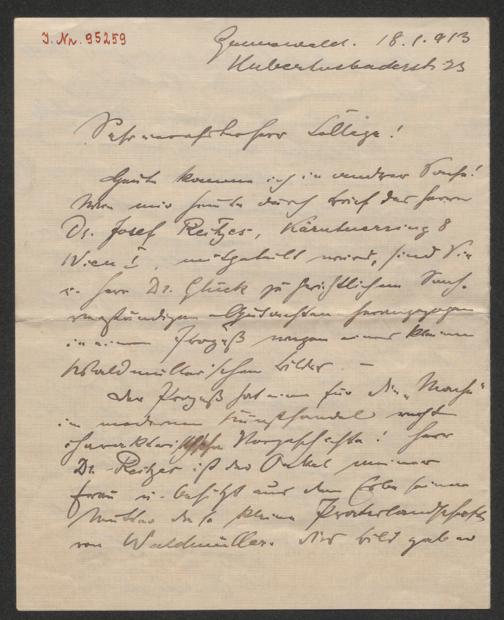 I. Nr. 95259
Grunewald. 18.1.913
Hubertusbaderstr 23
Sehr verehrter Herr College!
Heute komme ich in andrer Sache!
Wie mir heute durch Brief des Herrn
Dr. Josef Reitzes, Kärntnerring 8
Wien I, mitgeteilt wird, sind Sie
u. Herr Dr. Glück zu gerichtlichen Sach-
verständigen Gutachten herangezogen
in einem Prozeß wegen eines kleinen
Waldmüllerischen Bildes. —
Der Prozeß hat eine für die „Mache"
im modernen Kunsthandel recht
charakteristische Vorgeschichte! Herr
Dr. Reitzes ist der Onkel meiner
Frau u. besitzt aus dem Erbe seiner
Mutter diese kleine Praterlandschaft
von Waldmüller. Dies Bild gab er